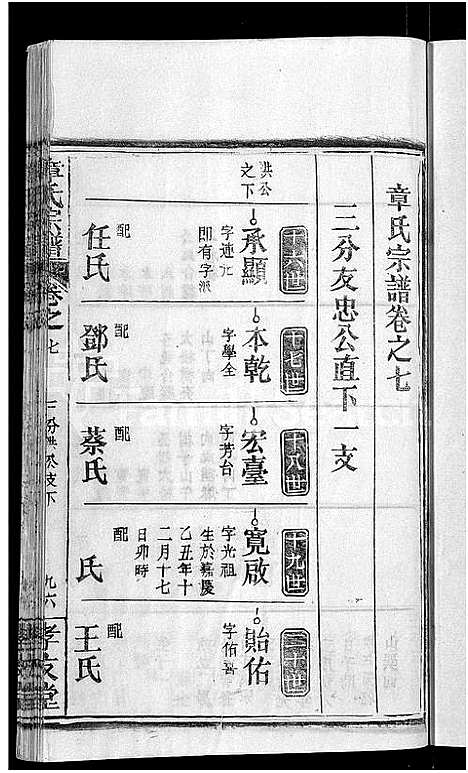 章氏宗譜卷之七
三分友忠公直下一支
洪公之下
十六世
承顯
字連元
即有字派
配
任氏
十七世
本乾
字學全
配
鄧氏
十八世
宏臺
字芳台
配
蔡氏
十九世
寬啟
字光祖
生於嘉慶
乙丑年十
二月十七
日卯時
配
氏
二十世
貽佑
字佑啓
配
王氏
章氏宗譜
卷之七
九六
孝友堂